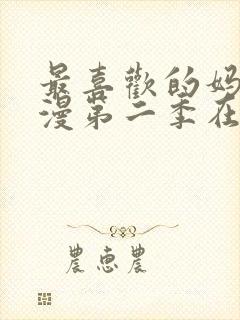 最喜歡的妈
漫第二季在
農惠農